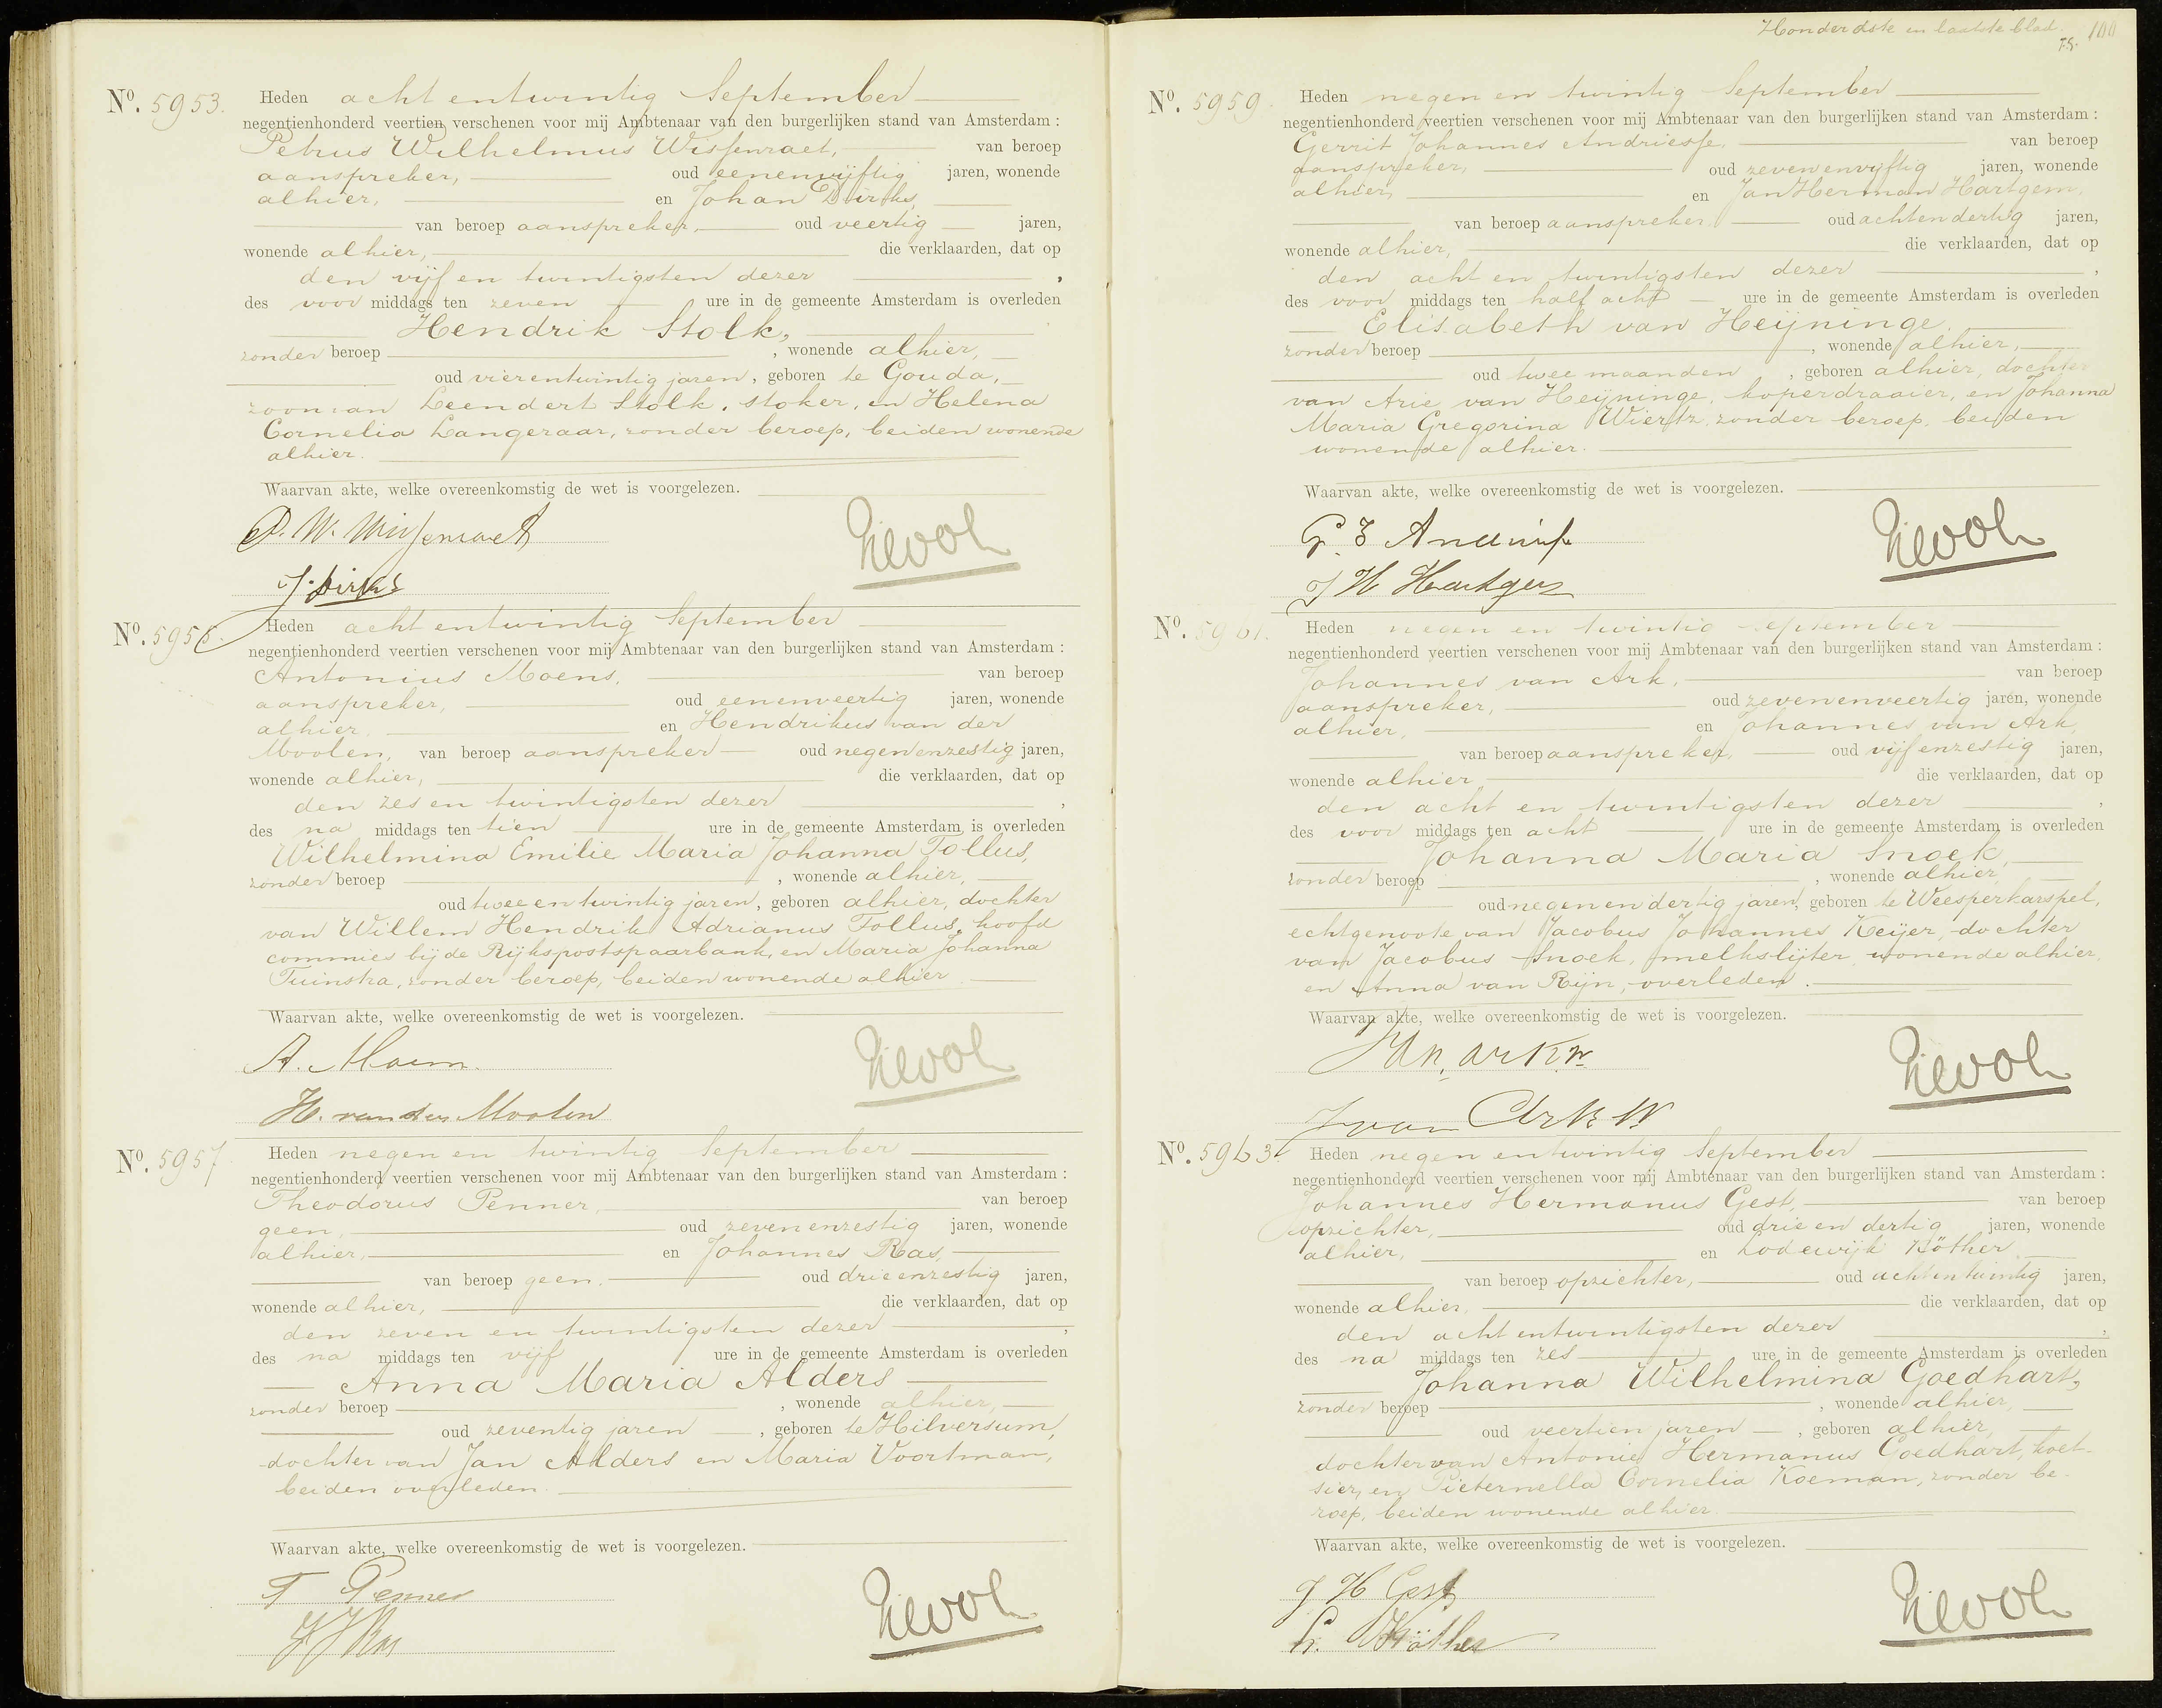 No. 5953.
Heden acht en twintig September
negentienhonderd veertien verschenen voor mij Ambtenaar van den burgerlijken stand van Amsterdam :
Petrus Wilhelmus Wissenraet, van beroep
aanspreker, oud eenenvijftig jaren, wonende
alhier, en Johan Dirks,
van beroep aanspreker, oud veertig jaren,
wonende alhier, die verklaarden, dat op
den vijf en twintigsten dezer ,
des voor middags ten zeven ure in de gemeente Amsterdam is overleden
Hendrik Stolk,
zonder beroep , wonende alhier,
oud vierentwintig jaren, geboren te Gouda,
zoon van Leendert Stolk, stoker, en Helena
Cornelia Langeraar, zonder beroep, beiden wonende
alhier.
Waarvan akte, welke overeenkomstig de wet is voorgelezen.
P. W. Wissenraet
J. Dirks
No. 5955.
Heden acht en twintig September
negentienhonderd veertien verschenen voor mij Ambtenaar van den burgerlijken stand van Amsterdam :
Antonius Moens, van beroep
aanspreker, oud eenenveertig jaren, wonende
alhier, en Hendrikus van der
Moolen, van beroep aanspreker oud negenenzestig jaren,
wonende alhier, die verklaarden, dat op
den zes en twintigsten dezer ,
des na middags ten tien ure in de gemeente Amsterdam is overleden
Wilhelmina Emilie Maria Johanna Follus,
zonder beroep , wonende alhier,
oud twee en twintig jaren, geboren alhier, dochter
van Willem Hendrik Adrianus Follus, hoofd
commies bij de Rijkspostspaarbank, en Maria Johanna
Tuinstra, zonder beroep, beiden wonende alhier
Waarvan akte, welke overeenkomstig de wet is voorgelezen.
A. Moens
H. van der Moolen
No. 5957
Heden negen en twintig September
negentienhonderd veertien verschenen voor mij Ambtenaar van den burgerlijken stand van Amsterdam :
Theodorus Penner, van beroep
geen, oud zevenenzestig jaren, wonende
alhier, en Johannes Ras,
van beroep geen. oud drieenzestig jaren,
wonende alhier, die verklaarden, dat op
den zeven en twintigsten dezer ,
des na middags ten vijf ure in de gemeente Amsterdam is overleden
Anna Maria Alders
zonder beroep , wonende alhier,
oud zeventig jaren , geboren te Hilversum,
dochter van Jan Alders en Maria Voortman,
beiden overleden.
Waarvan akte, welke overeenkomstig de wet is voorgelezen.
T Penner
J J Ras
Honderdste en laatste blad. 100
No. 5959.
Heden negen en twintig September
negentienhonderd veertien verschenen voor mij Ambtenaar van den burgerlijken stand van Amsterdam :
Gerrit Johannes Andriesse, van beroep
aanspreker, oud zevenenvijftig jaren, wonende
alhier, en Jan Herman Hartgers,
van beroep aanspreker. oud achtendertig jaren,
wonende alhier, die verklaarden, dat op
den acht en twintigsten dezer ,
des voor middags ten half acht ure in de gemeente Amsterdam is overleden
Elisabeth van Heijninge.
zonder beroep , wonende alhier,
oud twee maanden , geboren alhier, dochter
van Arie van Heijninge, koperdraaier, en Johanna
Maria Gregorina Wiertz, zonder beroep, beiden
wonende alhier.
Waarvan akte, welke overeenkomstig de wet is voorgelezen.
J H Hartgers
No. 5961.
Heden negen en twintig September
negentienhonderd veertien verschenen voor mij Ambtenaar van den burgerlijken stand van Amsterdam :
Johannes van Ark, van beroep
aanspreker, oud zevenenveertig jaren, wonende
alhier, en Johannes van Ark,
van beroep aanspreker, oud vijfenzestig jaren,
wonende alhier, die verklaarden, dat op
den acht en twintigsten dezer ,
des voor middags ten acht ure in de gemeente Amsterdam is overleden
Johanna Maria Snoek,
zonder beroep , wonende alhier,
oud negenendertig jaren, geboren te Weesperkarspel,
echtgenoote van Jacobus Johannes Keijer, dochter
van Jacobus Snoek, melkslijter, wonende alhier,
en Anna van Rijn, overleden.
Waarvan akte, welke overeenkomstig de wet is voorgelezen.
J van Ark
No. 5963.
Heden negen en twintig September
negentienhonderd veertien verschenen voor mij Ambtenaar van den burgerlijken stand van Amsterdam :
Johannes Hermanus Gest, van beroep
opzichter, oud drie en dertig jaren, wonende
alhier, en Lodewijk Köther,
van beroep opzichter, oud achtentwintig jaren,
wonende alhier, die verklaarden, dat op
den acht en twintigsten dezer ,
des na middags ten zes ure in de gemeente Amsterdam is overleden
Johanna Wilhelmina Goedhart,
zonder beroep , wonende alhier,
oud veertien jaren , geboren alhier,
dochter van Antonie Hermanus Goedhart, koet-
sier, en Pieternella Cornelia Koeman, zonder be-
roep, beiden wonende alhier.
Waarvan akte, welke overeenkomstig de wet is voorgelezen.
J H Gest
L. Köther